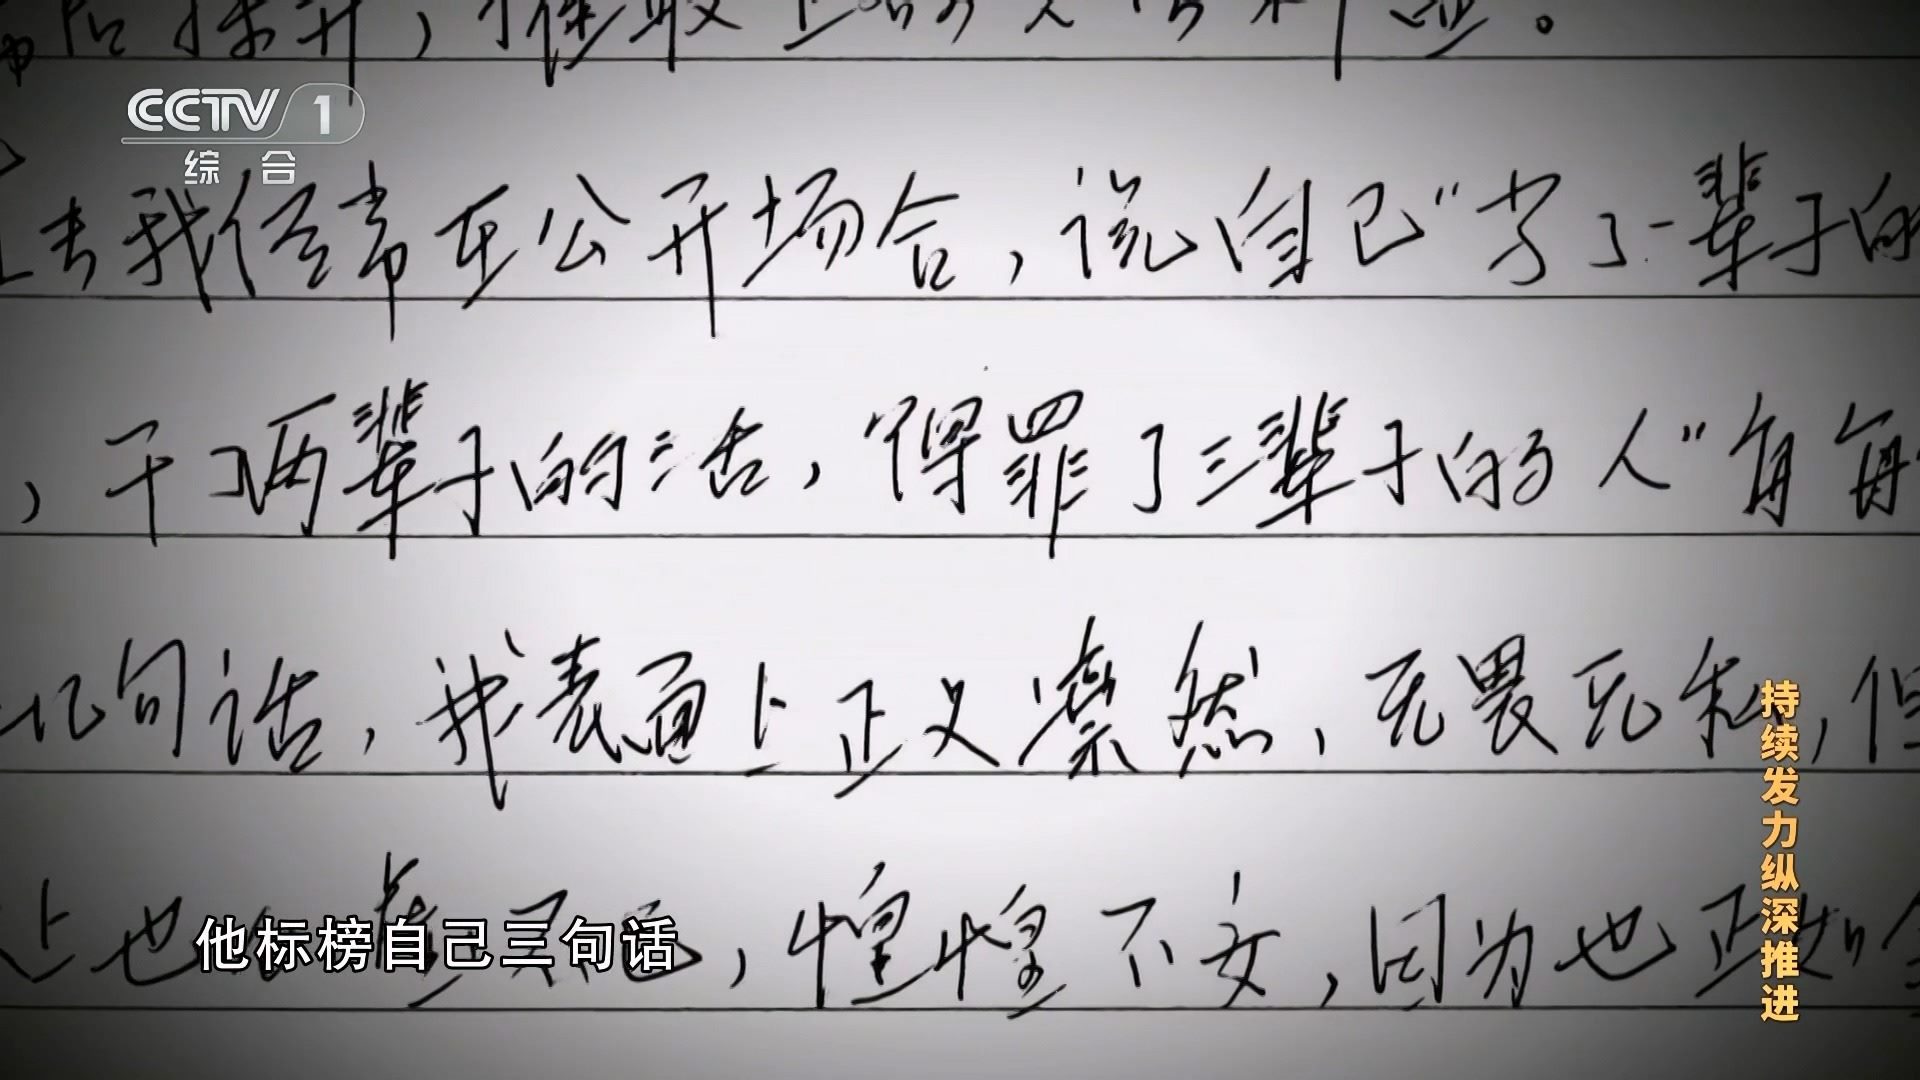 CCTV 1
综合
去我经常在公开场合，说自己“当了一辈子的
，干了两辈子的活，得罪了三辈子的人”每每
几句话，我表面上正义凛然，无畏无私，但
上也心虚，惶惶不安，因为也正如
他标榜自己三句话
持续发力纵深推进